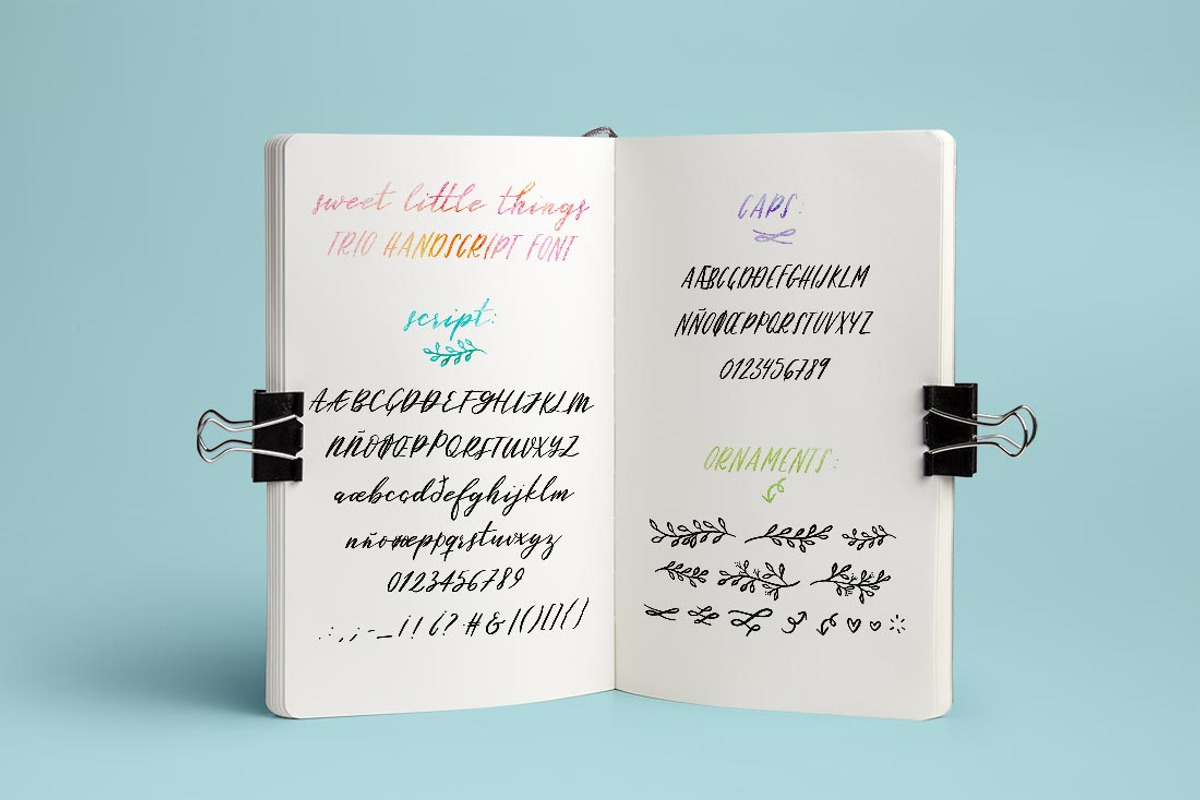 sweet little things
TRIO HANDSCRIPT FONT
script:
AÆBCÇDÐEFGHIJKLM
NÑOØŒPÞQRSTUVXYZ
aæbcçdðefghijklm
nñoøœpþqrstuvxyz
0123456789
.:,;-_¡!¿?#&|()[]{}
CAPS:
AÆBCÇDÐEFGHIJKLM
NÑOØŒPÞQRSTUVXYZ
0123456789
ORNAMENTS: